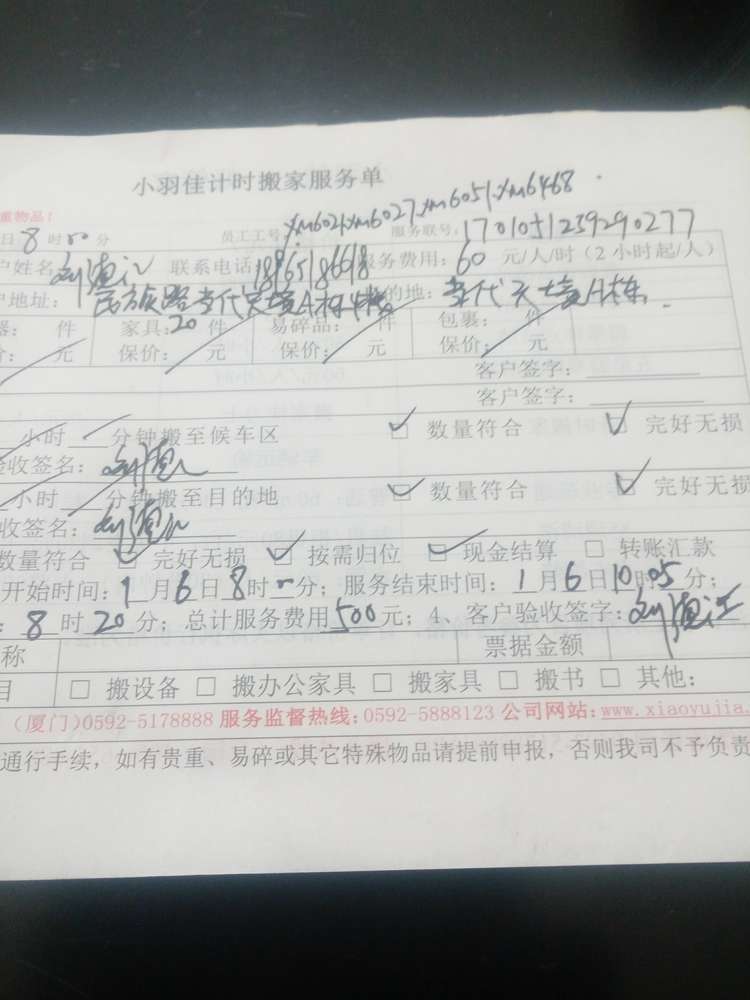 小羽佳计时搬家服务单
重物品!
日8时00分 员工工号:xm6021.xm6027.xm6051.xm6468. 服务联号:1701051239290277
户姓名: 联系电话18965186618服务费用:60元/人/时(2小时起/人)
户地址:民族路当代天境A栋 的地:当代天境A栋.
器: 件 家具:20件 易碎品: 件 包裹: 件
价: 元 保价: 元 保价: 元 保价: 元
客户签字:
客户签字:
小时 分钟搬至候车区 ☑ 数量符合 ☑ 完好无损
验收签名:
小时 分钟搬至目的地 ☑ 数量符合 ☑ 完好无损
收签名:
数量符合 ☑ 完好无损 ☑ 按需归位 ☑ 现金结算 □ 转账汇款
开始时间:1月6日8时00分;服务结束时间:1月6日10时05分;
:8时20分;总计服务费用500元;4、客户验收签字:
称 票据金额
目 □ 搬设备 □ 搬办公家具 □ 搬家具 □ 搬书 □ 其他:
(厦门)0592-5178888 服务监督热线:0592-5888123 公司网站:www.xiaoyujia.
通行手续,如有贵重、易碎或其它特殊物品请提前申报,否则我司不予负责